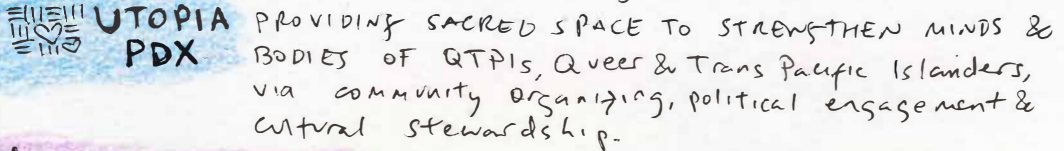 UTOPIA PDX
PROVIDING SACRED SPACE TO STRENGTHEN MINDS &
BODIES OF QTPIs, Queer & Trans Pacific Islanders,
via community organizing, political engagement &
cultural stewardship.